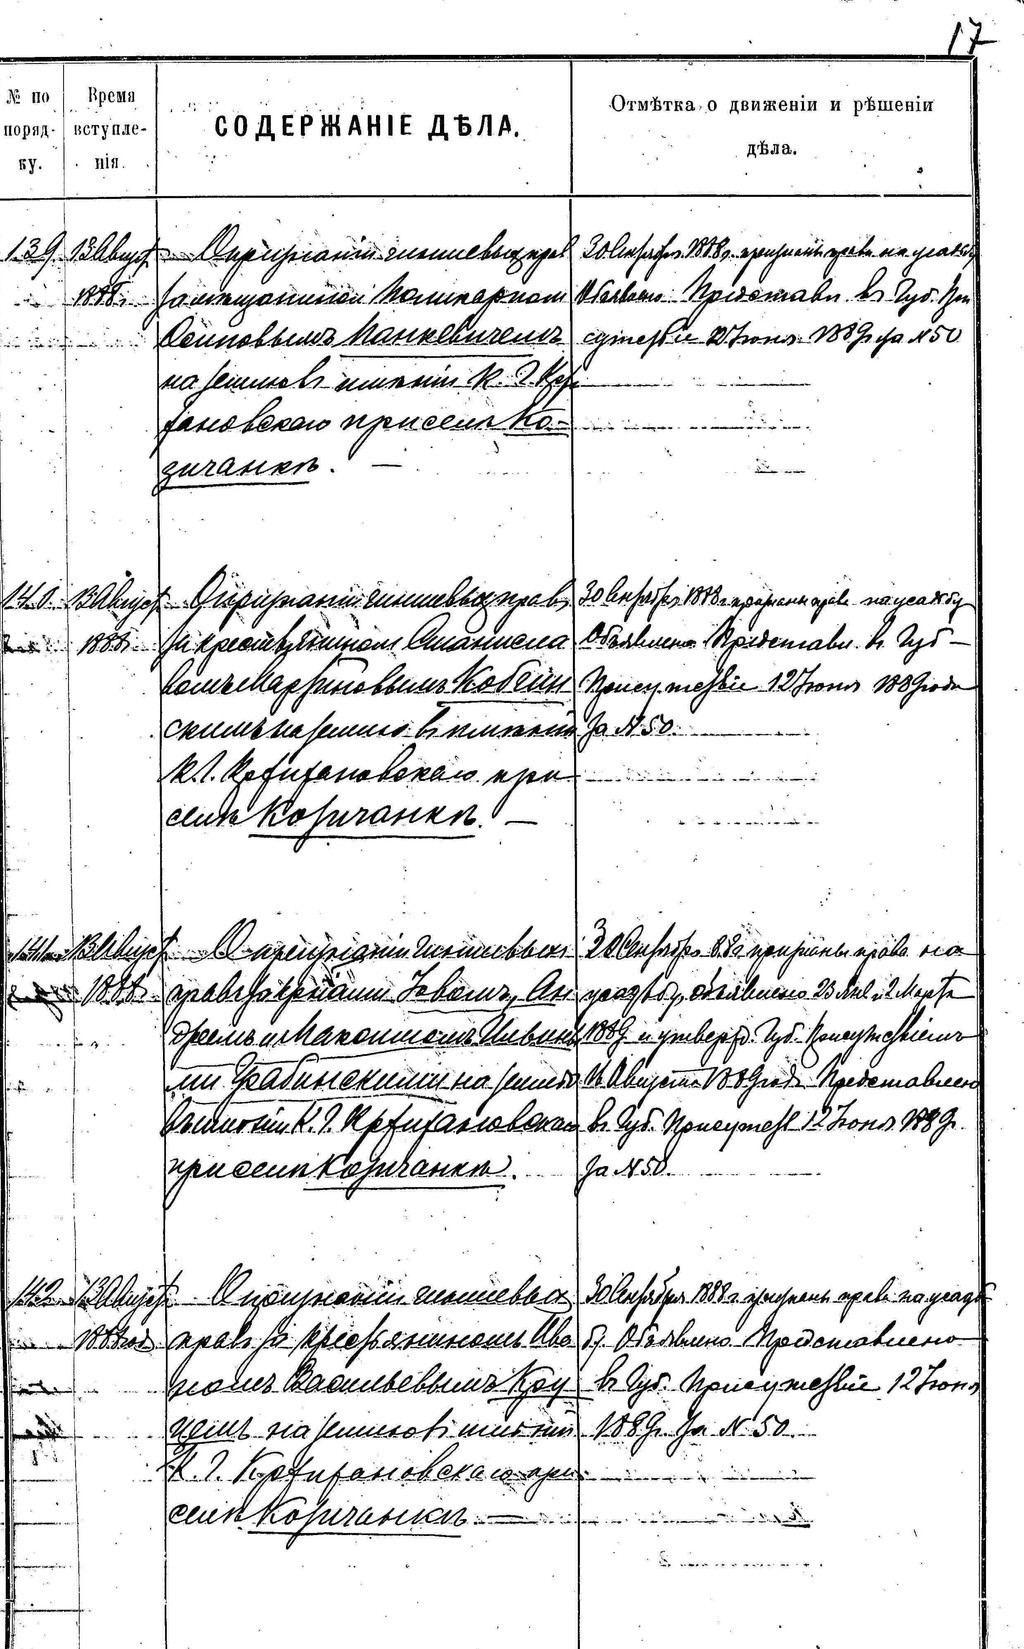 17
№ по поряд- ку.
Время вступле- нія.
СОДЕРЖАНІЕ ДѢЛА.
Отмѣтка о движеніи и рѣшеніи дѣла.
139
13 Август.
1888 г.
О признаніи чиншевыхъ правъ
за мещаниномъ
Осиповымъ Манкевичемъ
на землю въ имѣніи К. І. Кр
жановскаго при селѣ Ко-
зичанкѣ. —
30 Октября 1888 г. признаны права на усадьбу
Объявлено Представлен. въ Губ. При
сутствіе 12 Іюня 1889 г. за № 50
140
13 Август.
1888 г.
О признаніи чиншевыхъ правъ
за крестьяниномъ Станисла
вомъ Мартиновымъ Кобзин
скимъ на землю въ имѣніи
К. І. Кржижановскаго при
селѣ Козичанкѣ. —
30 Октября 1888 г. признаны права на усадьбу
Объявлено Представлен. въ Губ —
Присутствіе 12 Іюня 1889 года
за № 50.
141
13 Август.
1888 г.
О признаніи чиншевыхъ
правъ за крестьянами Іваномъ, Ан
дреемъ и Максимомъ Ивано
ми Грабинскими на землю
въ имѣніи К. І. Кржижановскаго
при селѣ Козичанкѣ.
30 Октября 888 признаны права на
усадьбу, объявлено 23 Янв. и 2 Марта
1889 и утвержд. Губ. Присутствіемъ
16 Августа 1889 года Представлено
въ Губ. Присутств 12 Іюня 1889 г.
за № 50.
142
13 Август.
1888 год
О признаніи чиншевыхъ
правъ за крестьяниномъ Ива
номъ Васильевымъ Кру
цемъ на землю въ имѣніи
К. І. Кржижановскаго при
селѣ Козичанкѣ. —
30 Октября 1888 г. признаны права на усадь
бу. Объявлено Представлено
въ Губ. Присутствіе 12 Іюня
1889 г. за № 50.